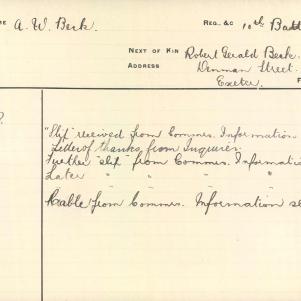 ME A. W. Beck. REG. &C 10th Batt
NEXT OF KIN Robert Gerald Beck.
ADDRESS Denman Street.
Exeter. F
"Slip" received from Commrs. Information
Letter of thanks from Inquirer.
Further "slip" from Commrs. Informati
Later " " " "
Cable from Commrs. Information se